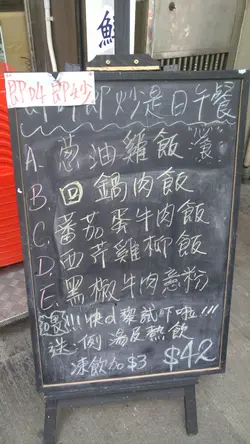 鮮
即叫即炒
即叫即炒是日午餐
A. 葱油雞飯 "必食"
B. 回鍋肉飯
C. 番茄蛋牛肉飯
D. 西芹雞柳飯
E. 黑椒牛肉意粉
!!! 快d黎試下啦!!!
送例湯及熱飲
凍飲加$3 $42